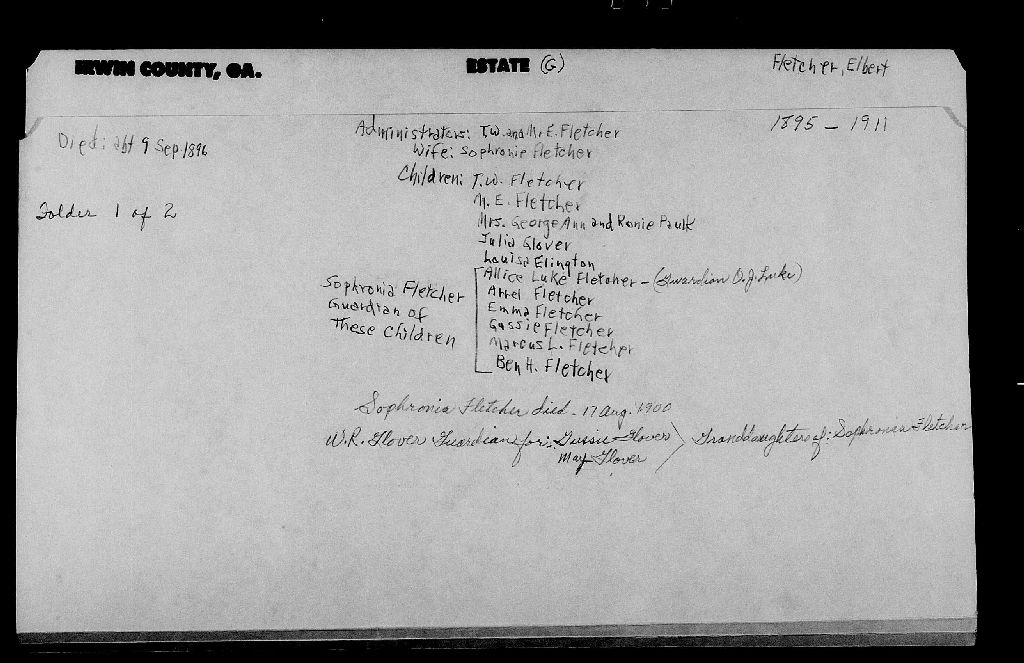 IRWIN COUNTY, GA. ESTATE (G) Fletcher, Elbert
1895 - 1911
Died: abt 9 Sep. 1896
Administrators: T.W. and M.E. Fletcher
Wife: Sophronie Fletcher
Children: T.W. Fletcher
M. E. Fletcher
Folder 1 of 2
Mrs. George Ann and Ronie Paulk
Julia Glover
Louisa Elington
Allice Luke Fletcher - (Guardian O. J. Luke)
Sophronia Fletcher
Guardian of
These Children
Arrel Fletcher
Emma Fletcher
Gussie Fletcher
Marcus L. Fletcher
Ben H. Fletcher
Sophronia Fletcher died - 17 Aug. 1900
W.R. Glover Guardian for: Gussie Glover
May Glover
Granddaughters of: Sophronia Fletcher